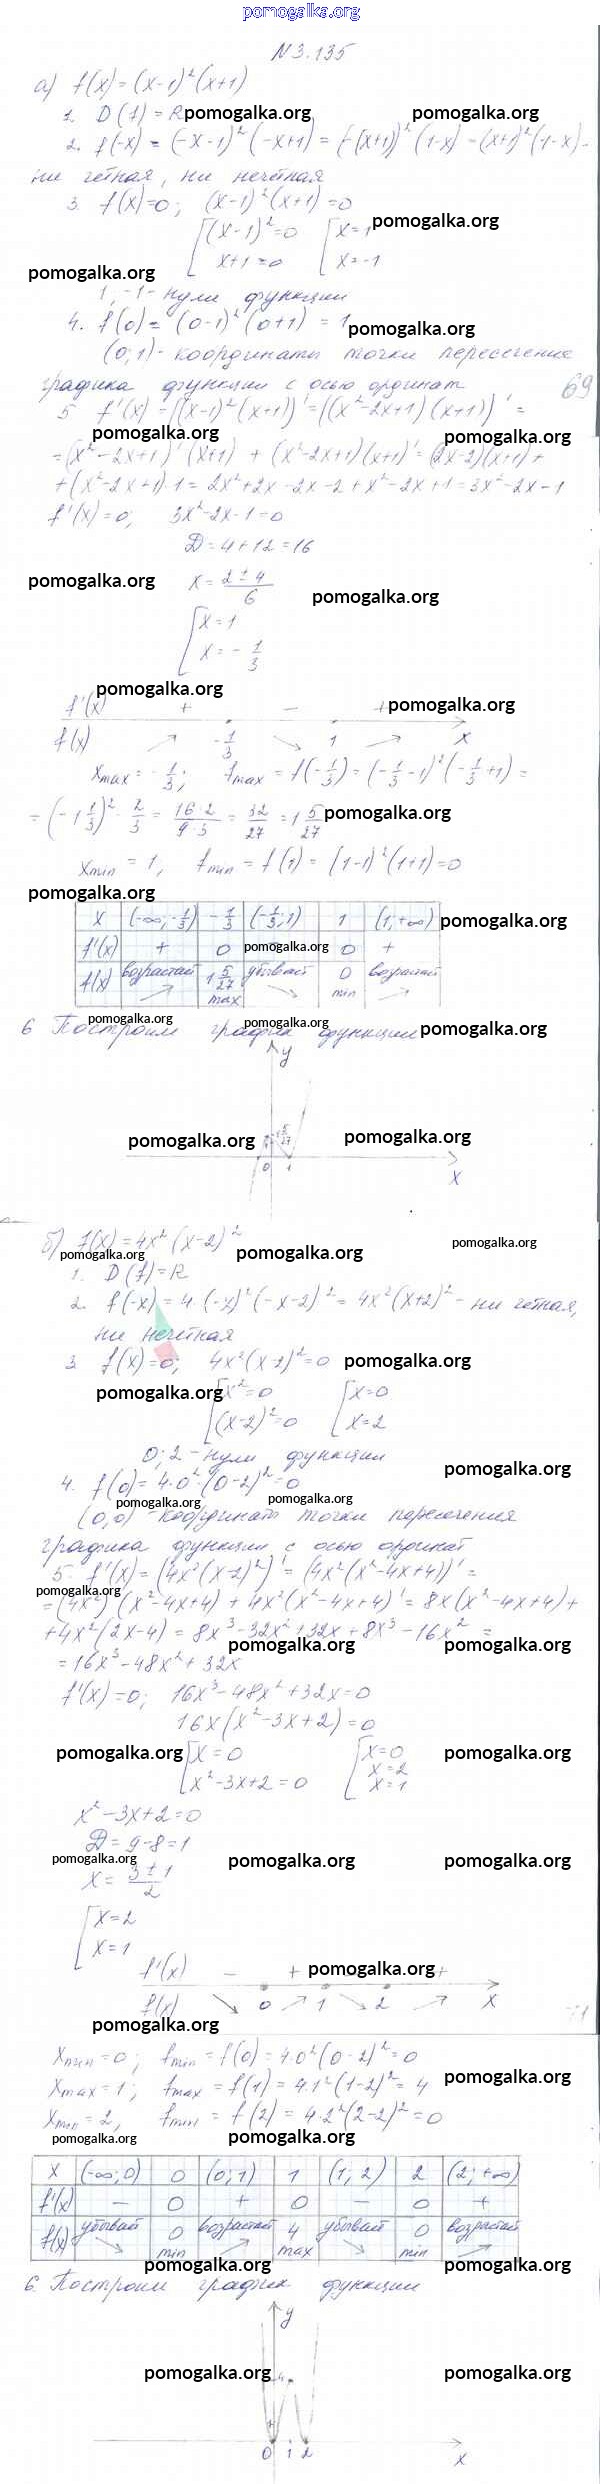 pomogalka.org
N 3.135
а) f(x) = (x-1)²(x+1)
1. D(f) = R pomogalka.org pomogalka.org
2. f(-x) = (-x-1)²(-x+1) = (-(x+1))²(1-x) = (x+1)²(1-x) -
ни четная, ни нечетная
3. f(x)=0; (x-1)²(x+1)=0
[(x-1)²=0 [x=1 pomogalka.org
x+1=0 x=-1
pomogalka.org
1, -1 - нули функции
4. f(0) = (0-1)²(0+1) = 1 pomogalka.org
(0;1) - координаты точки пересечение
графика функции с осью ординат 69
5. f'(x) = ((x-1)²(x+1))' = ((x²-2x+1)(x+1))' =
pomogalka.org pomogalka.org
= (x²-2x+1)'(x+1) + (x²-2x+1)(x+1)' = (2x-2)(x+1) +
+ (x²-2x+1)·1 = 2x²+2x-2x-2+x²-2x+1 = 3x²-2x-1
f'(x)=0; 3x²-2x-1=0
D = 4+12 = 16
pomogalka.org x = (2±4)/6 pomogalka.org
[x=1
x = -1/3
pomogalka.org
f'(x) + - + pomogalka.org
f(x) ↗ -1/3 ↘ 1 ↗ x
xmax = -1/3; fmax = f(-1/3) = (-1/3-1)²(-1/3+1) =
= (-1 1/3)² · 2/3 = (16·2)/(9·3) = 32/27 = 1 5/27 pomogalka.org
xmin = 1, fmin = f(1) = (1-1)²(1+1) = 0
pomogalka.org
x (-∞; -1/3) -1/3 (-1/3; 1) 1 (1; +∞) pomogalka.org
f'(x) + 0 pomogalka.org 0 +
f(x) возрастает ↗ 1 5/27 max убывает ↘ 0 min возрастает ↗
pomogalka.org pomogalka.org
6 Построим график функции pomogalka.org
y
pomogalka.org 1 5/27 pomogalka.org
0 1 x
б) f(x) = 4x²(x-2)² pomogalka.org
pomogalka.org pomogalka.org
1. D(f) = R
2. f(-x) = 4·(-x)²(-x-2)² = 4x²(x+2)² - ни четная,
ни нечетная
3 f(x)=0; 4x²(x-2)²=0 pomogalka.org
pomogalka.org [x²=0 [x=0
(x-2)²=0 x=2
0; 2 - нули функции
pomogalka.org
4. f(0) = 4·0²·(0-2)² = 0
pomogalka.org pomogalka.org
(0;0) - координаты точки пересечения
графика функции с осью ординат
5. f'(x) = (4x²(x-2)²)' = (4x²(x²-4x+4))' =
pomogalka.org
= (4x²)'(x²-4x+4) + 4x²(x²-4x+4)' = 8x(x²-4x+4) +
+ 4x²(2x-4) = 8x³-32x²+32x+8x³-16x² =
pomogalka.org pomogalka.org
= 16x³-48x²+32x
f'(x)=0; 16x³-48x²+32x=0
16x(x²-3x+2)=0
pomogalka.org [x=0 [x=0 pomogalka.org
x²-3x+2=0 x=2
x=1
x²-3x+2=0
D = 9-8 = 1
pomogalka.org pomogalka.org pomogalka.org
x = (3±1)/2
[x=2
x=1
f'(x) - + pomogalka.org +
f(x) ↘ 0 ↗ 1 ↘ 2 ↗ x
pomogalka.org
xmin = 0; fmin = f(0) = 4·0²(0-2)² = 0
xmax = 1; fmax = f(1) = 4·1²(1-2)² = 4 pomogalka.org
xmin = 2, fmin = f(2) = 4·2²(2-2)² = 0
pomogalka.org pomogalka.org
x (-∞; 0) 0 (0; 1) 1 (1; 2) 2 (2; +∞)
f'(x) - 0 + 0 - 0 +
f(x) убывает ↘ 0 min возрастает ↗ 4 max убывает ↘ 0 min возрастает ↗
pomogalka.org pomogalka.org
6. Построим график функции
y
pomogalka.org 4 pomogalka.org
0 1 2 x